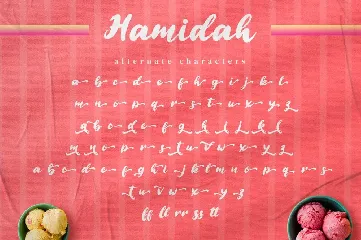 Hamidah
alternate characters
a b c d e f g h i j k l
m n o p q r s t u v w x y z
a b c d e f g h i j k l
m n o p q r s t u v w x y z
a b c d e f g h i j k l m n o p q r s
t u v w x y z
ff ll rr ss tt